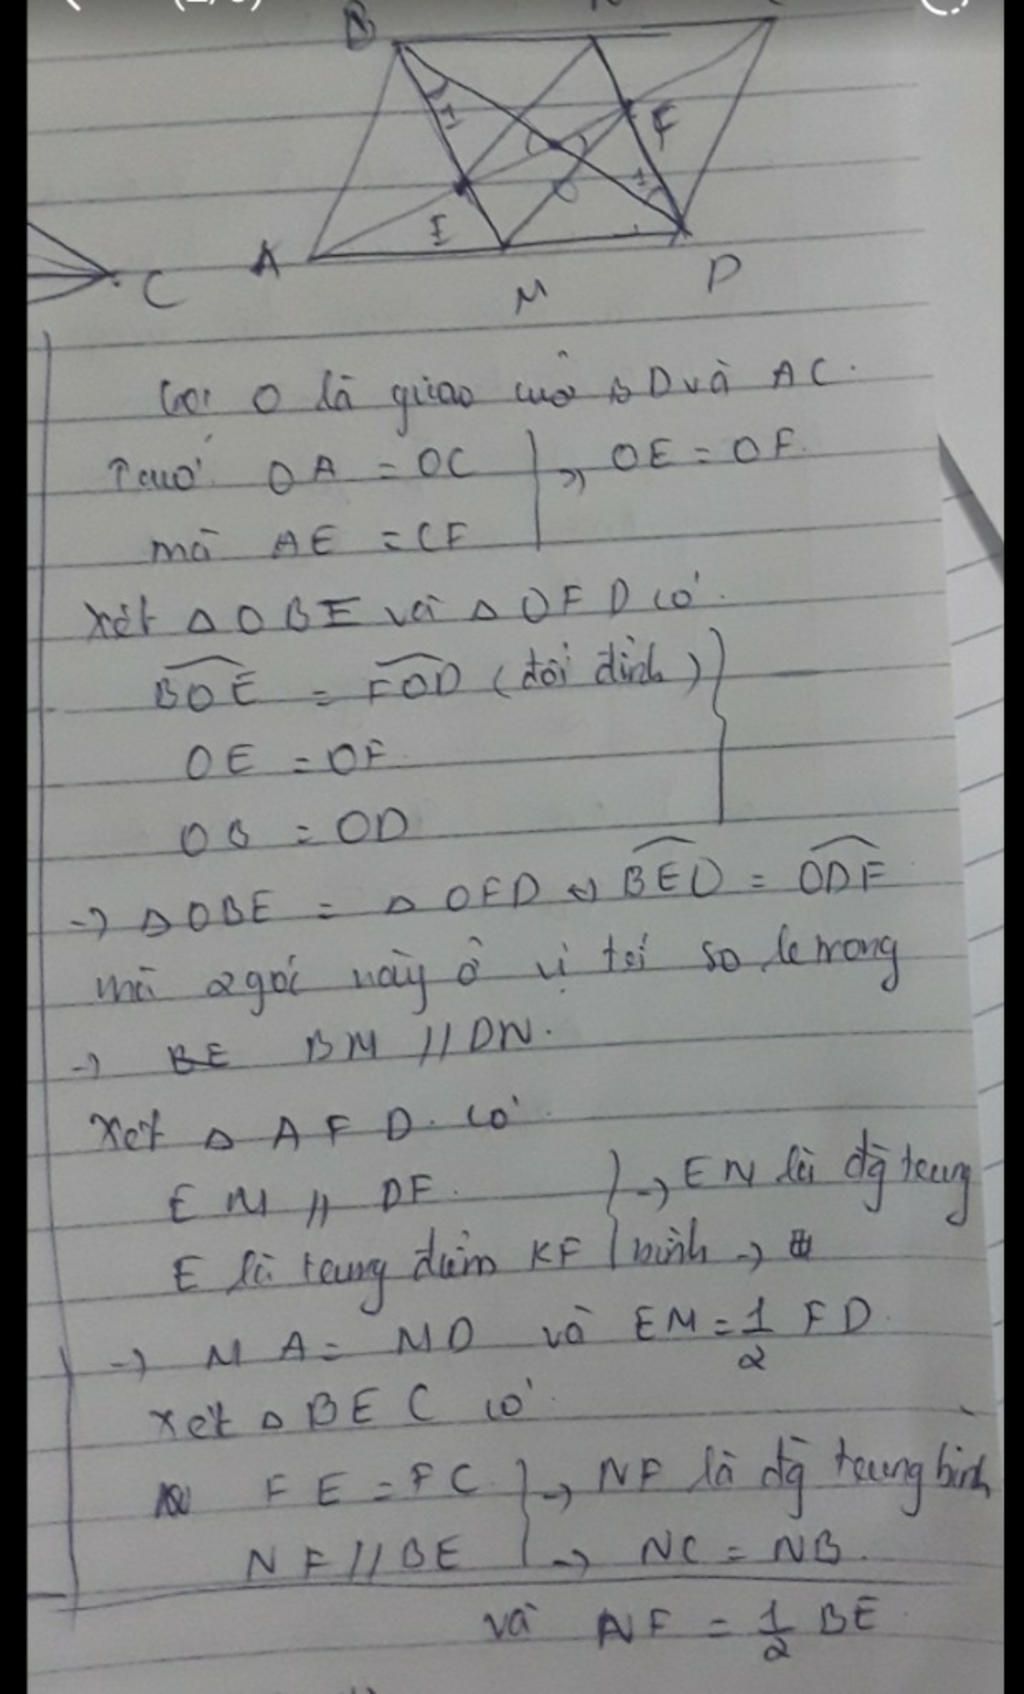 B
F
E
A
M
D
C
Gọi O là giao của BD và AC.
Ta có OA = OC } → OE = OF.
mà AE = CF
Xét △OBE và △OFD có:
BOE = FOD (đối đỉnh)
OE = OF
OB = OD
→ △OBE = △OFD ⇔ BEO = ODF
mà 2 góc này ở vị trí so le trong
→ BM // DN.
Xét △AFD có
EM // DF. } → EM là đg trung
E là trung điểm KF } bình →
→ MA = MD và EM = 1/2 FD.
Xét △BEC có
FE = FC } → NF là đg trung bình
NF // BE } → NC = NB.
và NF = 1/2 BE